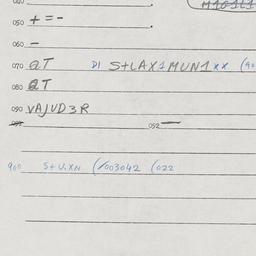 050 + = -
060 -
070 QT DI S+LAX1MUN1 xx (90
080 QT
090 VAJUD3R
092 —
900 S+U.XN (/003042 (022